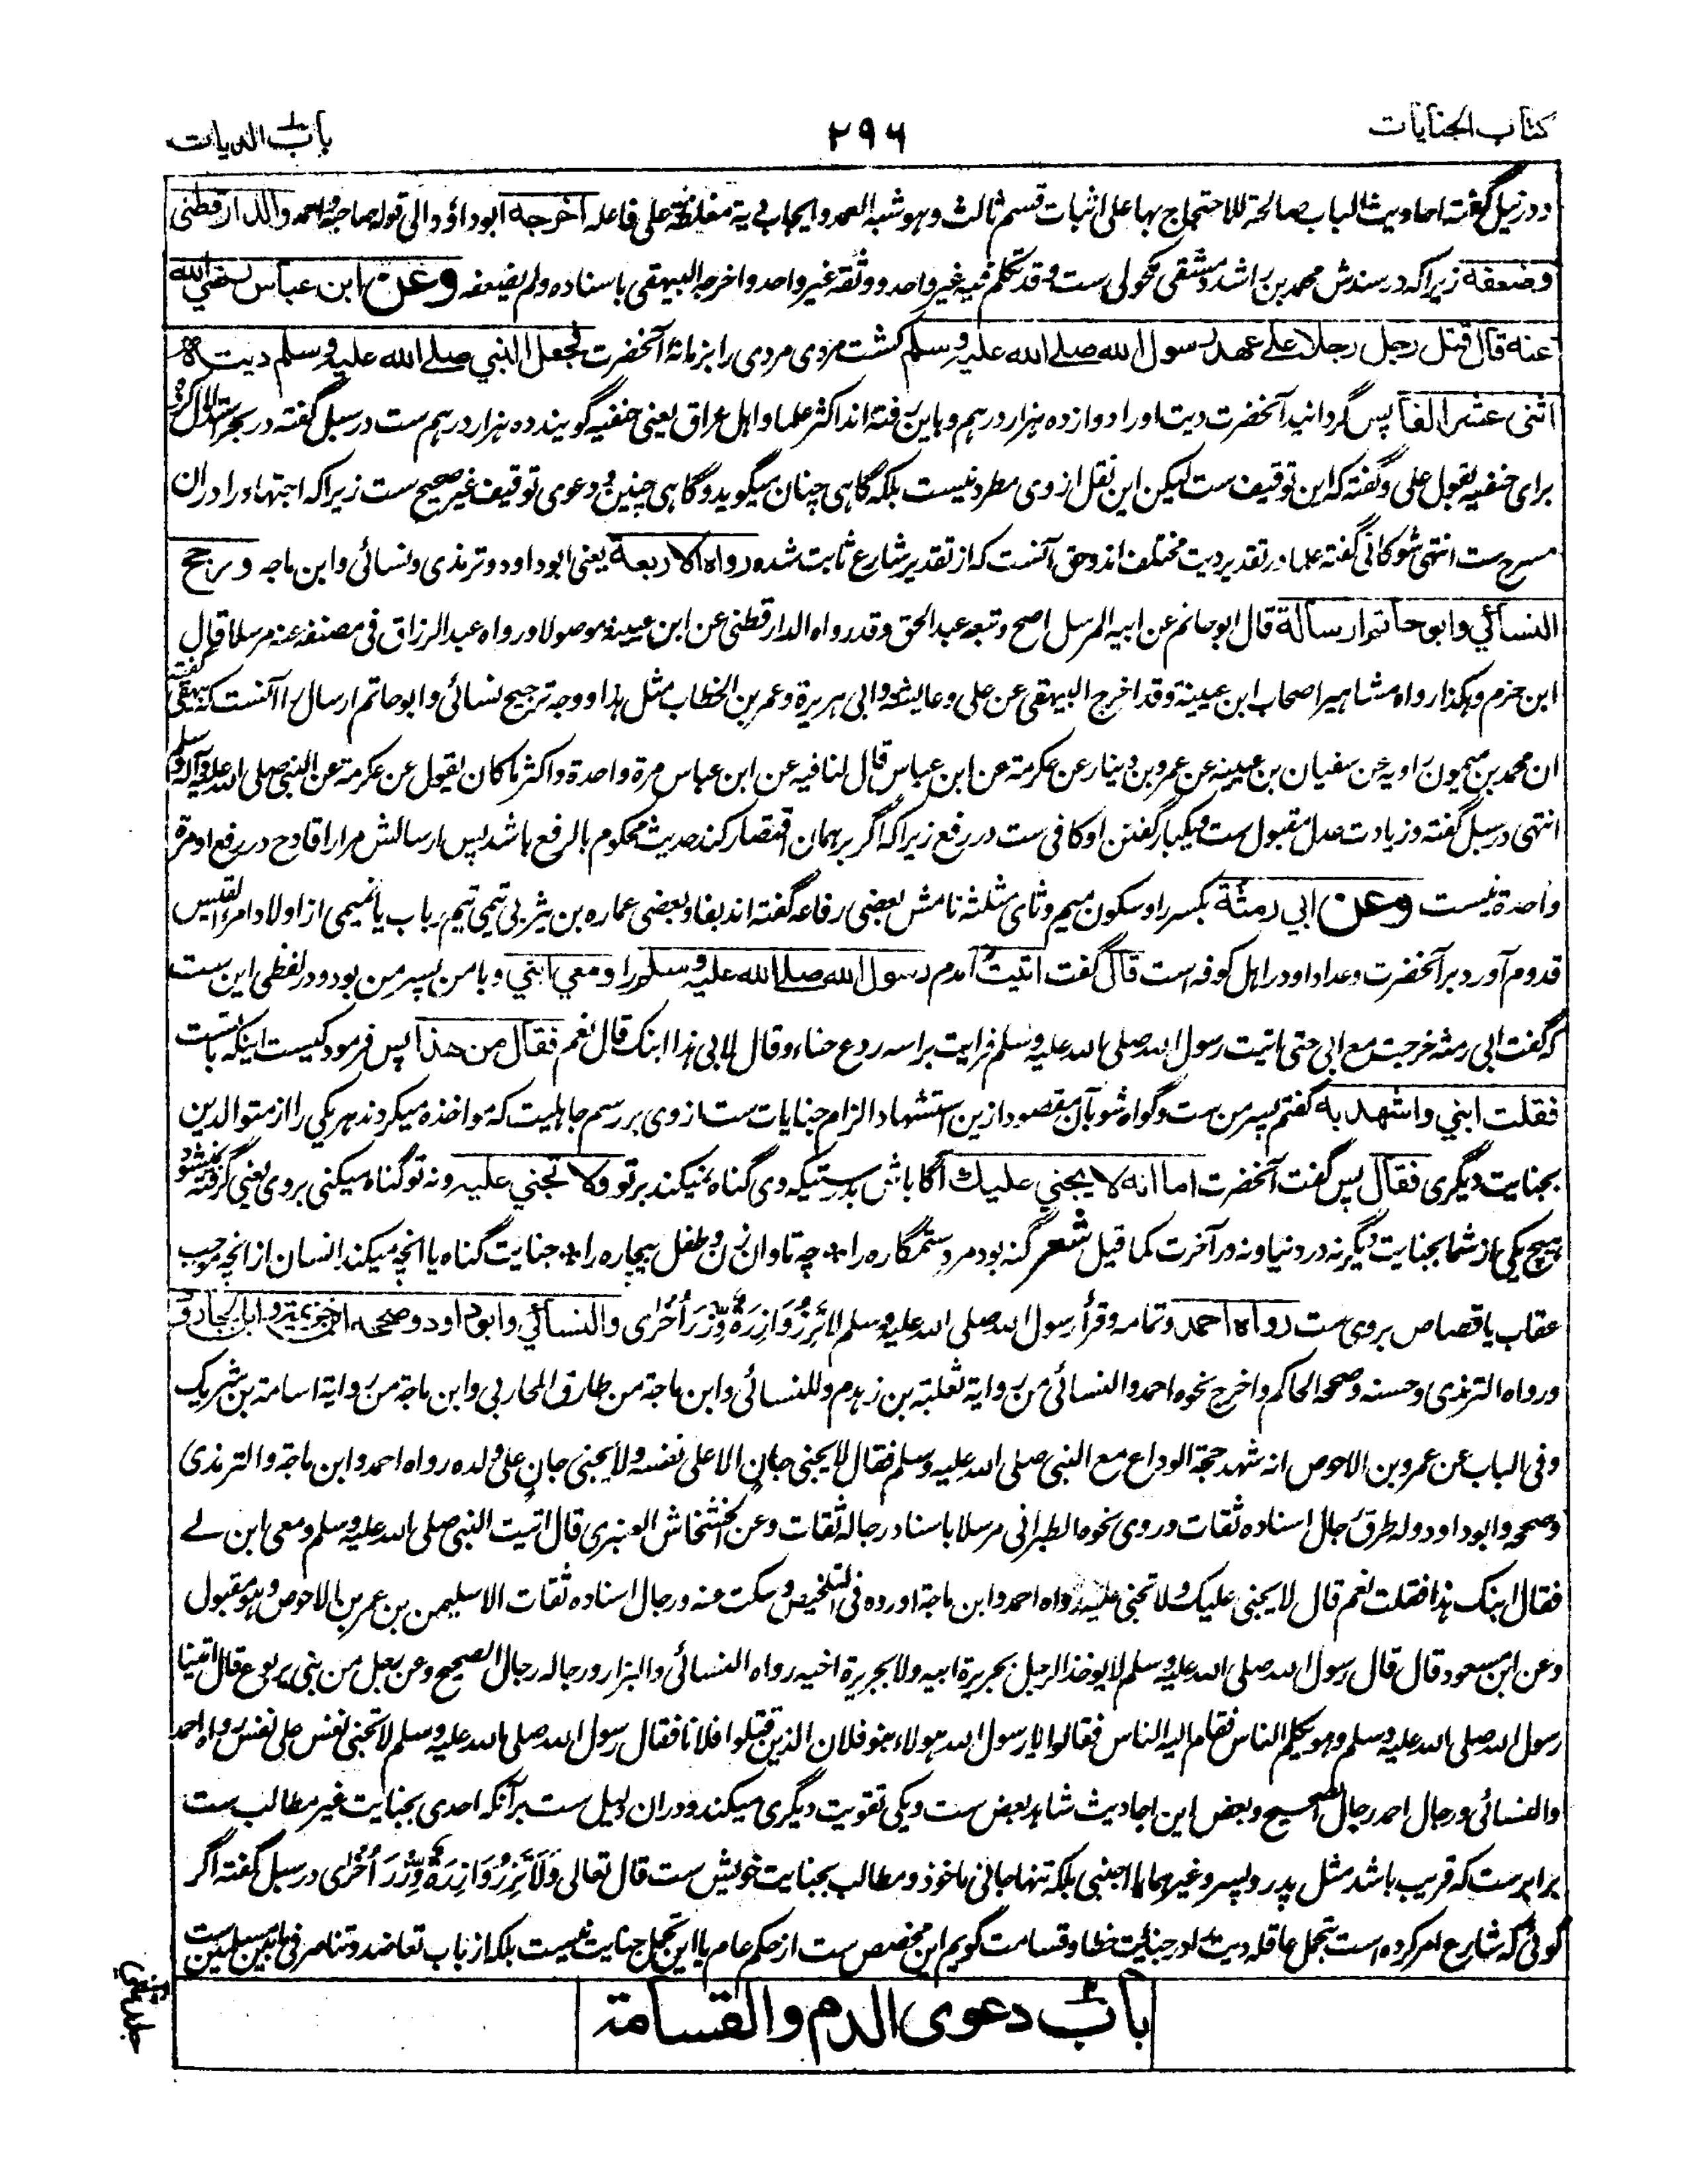 كتاب الجنايات
۲۹۶
باب الديات
ودر نیل گفته احادیث الباب صالحة للاحتجاج بها علی اثبات قسم ثالث وهو شبه العمد وایجاب دیة مغلظة علی فاعله اخرجه ابوداؤد والی قوله ماجة واحمد والدارقطنی
وضعفه زیراکه در سندش محمد بن راشد دمشقی مکحولی ست وقد تکلم فیه غیر واحد ووثقه غیر واحد واخرجه البیهقی باسناده ولم یضعفه وعن ابن عباس رضي الله
عنه قال قتل رجل رجلا علی عهد رسول الله صلے الله علیه وسلم کشت مردی مردی را بزمانهٔ آنحضرت فجعل النبي صلے الله علیه وسلم دیته
اثنی عشر الفا پس گردانید آنحضرت دیت او را دوازده هزار درهم وباین رفته اند اکثر علما واهل عراق یعنی حنفیه گویند ده هزار درهم ست در سبل گفته در بحر استدلال کرده
برای حنفیه بقول علی وگفته که این توقیف ست لیکن این نقل از وی مطرد نیست بلکه گاهی چنان میگوید وگاهی چنین ودعوی توقیف غیر صحیح ست زیراکه اجتهاد را دران
مسرح ست انتهی شوکانی گفته علما در تقدیر دیت مختلف اند وحق آنست که از تقدیر شارع ثابت شده رواه الاربعة یعنی ابوداود وترمذی ونسائی وابن ماجه ورجح
النسائي وابو حاتم ارساله قال ابوحاتم عن ابیه المرسل اصح وتبعه عبدالحق وقد رواه الدارقطنی عن ابن عیینة موصولا ورواه عبدالرزاق فی مصنفه عنه مرسلا قال
ابن حزم وهکذا رواه مشاهیر اصحاب ابن عیینة وقد اخرج البیهقی عن علی وعایشة وابی هریرة وعمر بن الخطاب مثل هذا ووجه ترجیح نسائی وابوحاتم ارسال را آنست که بیهقی گفته
ان محمد بن میمون راویه عن سفیان بن عیینه عن عمرو بن دینار عن عکرمة عن ابن عباس قال لنا فیه عن ابن عباس مرة واحدة واکثر ما کان یقول عن عکرمة عن النبی صلی الله علیه وآله وسلم
انتهی در سبل گفته وزیادت عدل مقبول ست ویکبار گفتن او کافی ست در رفع زیراکه اگر برهمان اقتصار کند حدیث محکوم بالرفع باشد پس ارسالش مرارا قادح در رفع او مرة
واحدة نیست وعن ابي رمثة بکسر را وسکون میم وثای مثلثه نامش بعضی رفاعه گفته اند بفا وبعضی عماره بن یثربی تیمی تیم رباب یا تمیمی از اولاد امرء القیس
قدوم آورد بر آنحضرت وعداد او در اهل کوفه است قال گفت اتیت آمدم رسول الله صلے الله علیه وسلم را ومعي ابني وبا من پسر من بود ودر لفظی این ست
که گفت ابی رمثه خرجت مع ابی حتی اتیت رسول الله صلی الله علیه وسلم فرایت براسه ردع حناء وقال لابی هذا ابنک قال نعم فقال من هذا پس فرمود کیست اینکه با تست
فقلت ابني واشهد به گفتم پسر من ست وگواه شو بآن مقصود ازین استشهاد الزام جنایات ست از وی بر رسم جاهلیت که مواخذه میکردند هر یکی را از متوالدین
بجنایت دیگری فقال پس گفت آنحضرت اما انه لا یجني علیك آگاه باش بدرستیکه وی گناه نمیکند بر تو ولا تجني علیه ونه تو گناه میکنی بر وی یعنی گرفته نمیشود
هیچ یکی از شما بجنایت دیگر نه در دنیا ونه در آخرت کما قیل شعر گنه بود مرد ستمگاره را * چه تاوان زن وطفل بیچاره را * جنایت گناه یا آنچه میکند انسان از آنچه موجب
عقاب یا قصاص بر وی ست رواه احمد وتمامه وقرأ رسول الله صلی الله علیه وسلم لَا تَزِرُ وَازِرَةٌ وِّزْرَ أُخْرٰی والنسائي وابوداود وصححه ابن خزیمة وابن الجارود
ورواه الترمذی وحسنه وصححه الحاکم واخرج نحوه احمد والنسائی من روایة ثعلبة بن زهدم وللنسائی وابن ماجة من طارق المحاربی وابن ماجة من روایة اسامة بن شریک
وفی الباب عن عمرو بن الاحوص انه شهد حجة الوداع مع النبی صلی الله علیه وسلم فقال لا یجنی جانٍ الا علی نفسه ولا یجنی جانٍ علی ولده رواه احمد وابن ماجة والترمذی
وصححه وابوداود وله طرق رجال اسناده ثقات وروی نحوه الطبرانی مرسلا باسناد رجاله ثقات وعن الخشخاش العنبری قال اتیت النبی صلی الله علیه وسلم ومعی ابن لے
فقال ابنک هذا فقلت نعم قال لا یجنی علیک ولا تجنی علیه رواه احمد وابن ماجة اورده فی التلخیص وسکت عنه ورجال اسناده ثقات الا سلیمن بن عمرو بن الاحوص وهو مقبول
وعن ابن مسعود قال قال رسول الله صلی الله علیه وسلم لا یوخذ الرجل بجریرة ابیه ولا بجریرة اخیه رواه النسائی والبزار ورجاله رجال الصحیح وعن رجل من بنی یربوع قال اتینا
رسول الله صلی الله علیه وسلم وهو یکلم الناس فقام الیه الناس فقالوا یا رسول الله هولاء بنو فلان الذین قتلوا فلانا فقال رسول الله صلی الله علیه وسلم لا تجنی نفس علی نفس رواه احمد
والنسائی ورجال احمد رجال الصحیح وبعض این احادیث شاهد بعض ست ویکی تقویت دیگری میکند ودران دلیل ست بر آنکه احدی بجنایت غیر مطالب ست
برابر ست که قریب باشد مثل پدر وپسر وغیرهما یا اجنبی بلکه تنها جانی ماخوذ ومطالب بجنایت خویش ست قال تعالی وَلَا تَزِرُ وَازِرَةٌ وِّزْرَ أُخْرٰی در سبل گفته اگر
گوئی که شارع امر کرده است بتحمل عاقله دیت را در جنایت خطا وقسامت گویم این مخصص ست از حکم عام یا این تحمل جنایت نیست بلکه از باب تعاضد وتناصر فیما بین مسلمین ست
باب دعوی الدم والقسامة